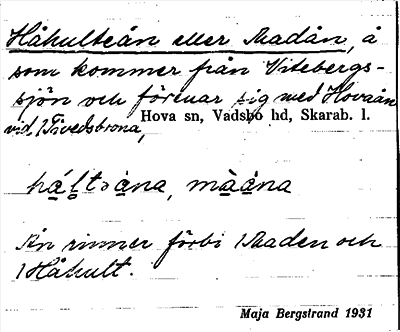 Håhultsån eller Madån, å
som kommer från Vitebergs-
sjön och förenar sig med Hovaån
vid Tivedsbrona,
Hova sn, Vadsbo hd, Skarab. l.
mà̀åna
Ån rinner förbi Maden och
Håhult.
Maja Bergstrand 1931